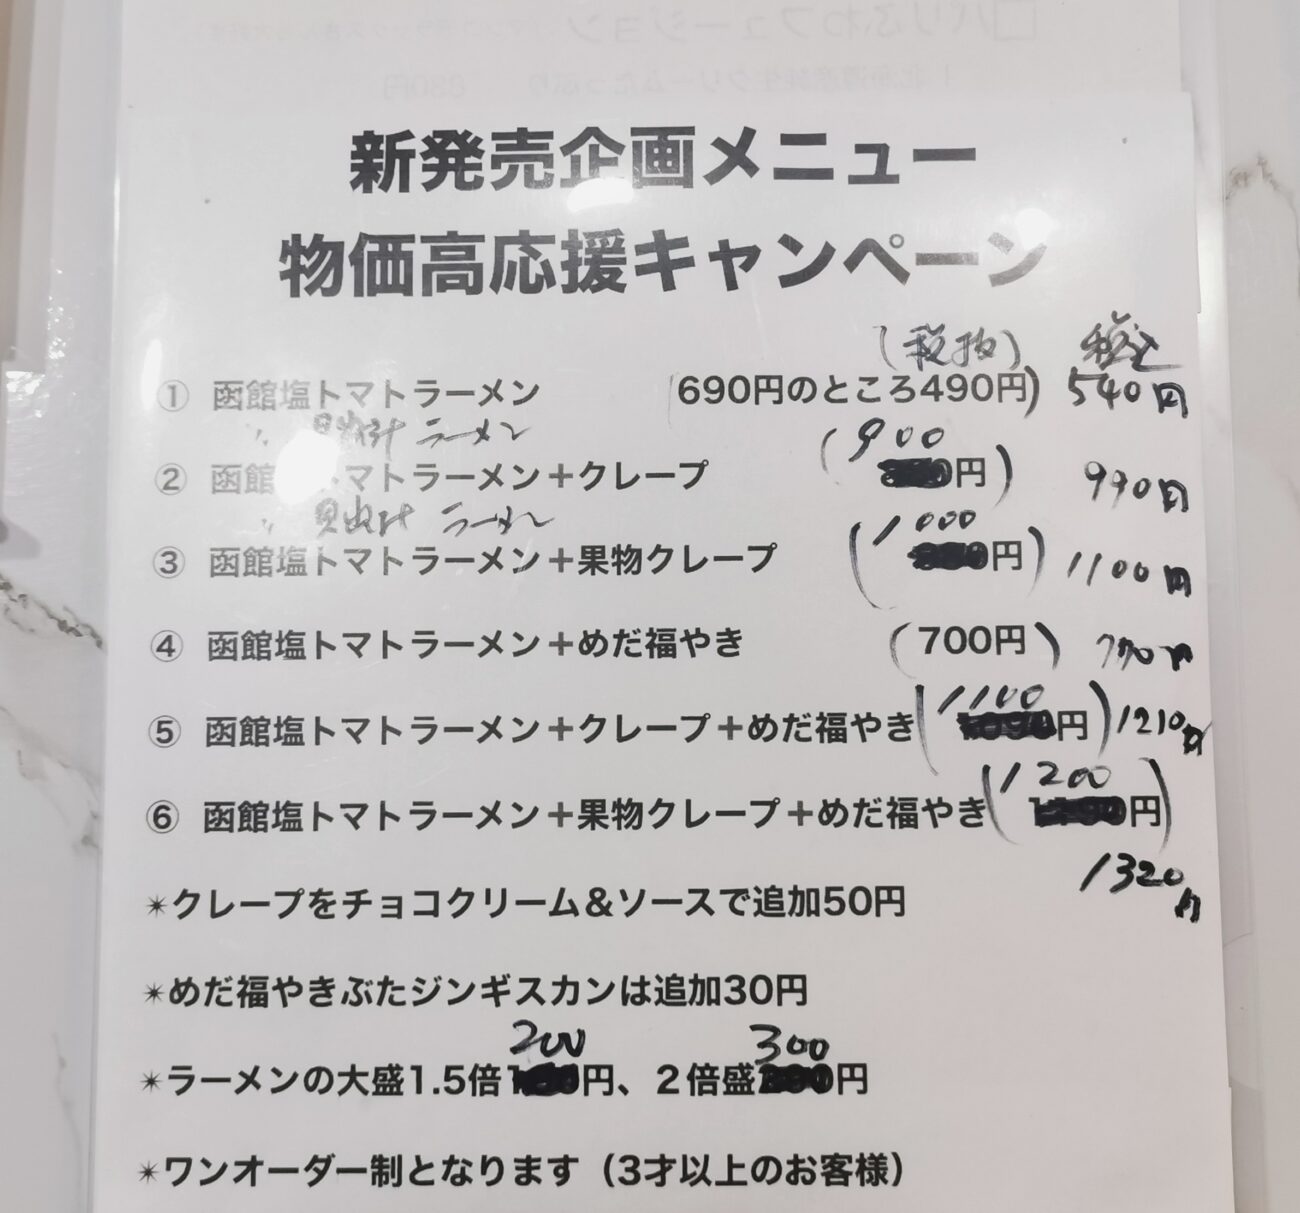 新発売企画メニュー
物価高応援キャンペーン
(税抜) 税込
① 函館塩トマトラーメン (690円のところ490円) 540円
〃 ラーメン
② 函館 トマトラーメン＋クレープ (900円) 990円
〃 ラーメン
③ 函館塩トマトラーメン＋果物クレープ (1000円) 1100円
④ 函館塩トマトラーメン＋めだ福やき (700円) 770円
⑤ 函館塩トマトラーメン＋クレープ＋めだ福やき (1100円) 1210円
⑥ 函館塩トマトラーメン＋果物クレープ＋めだ福やき (1200円)
1320円
✴クレープをチョコクリーム＆ソースで追加50円
✴めだ福やきぶたジンギスカンは追加30円
✴ラーメンの大盛1.5倍200円、２倍盛300円
✴ワンオーダー制となります（3才以上のお客様）